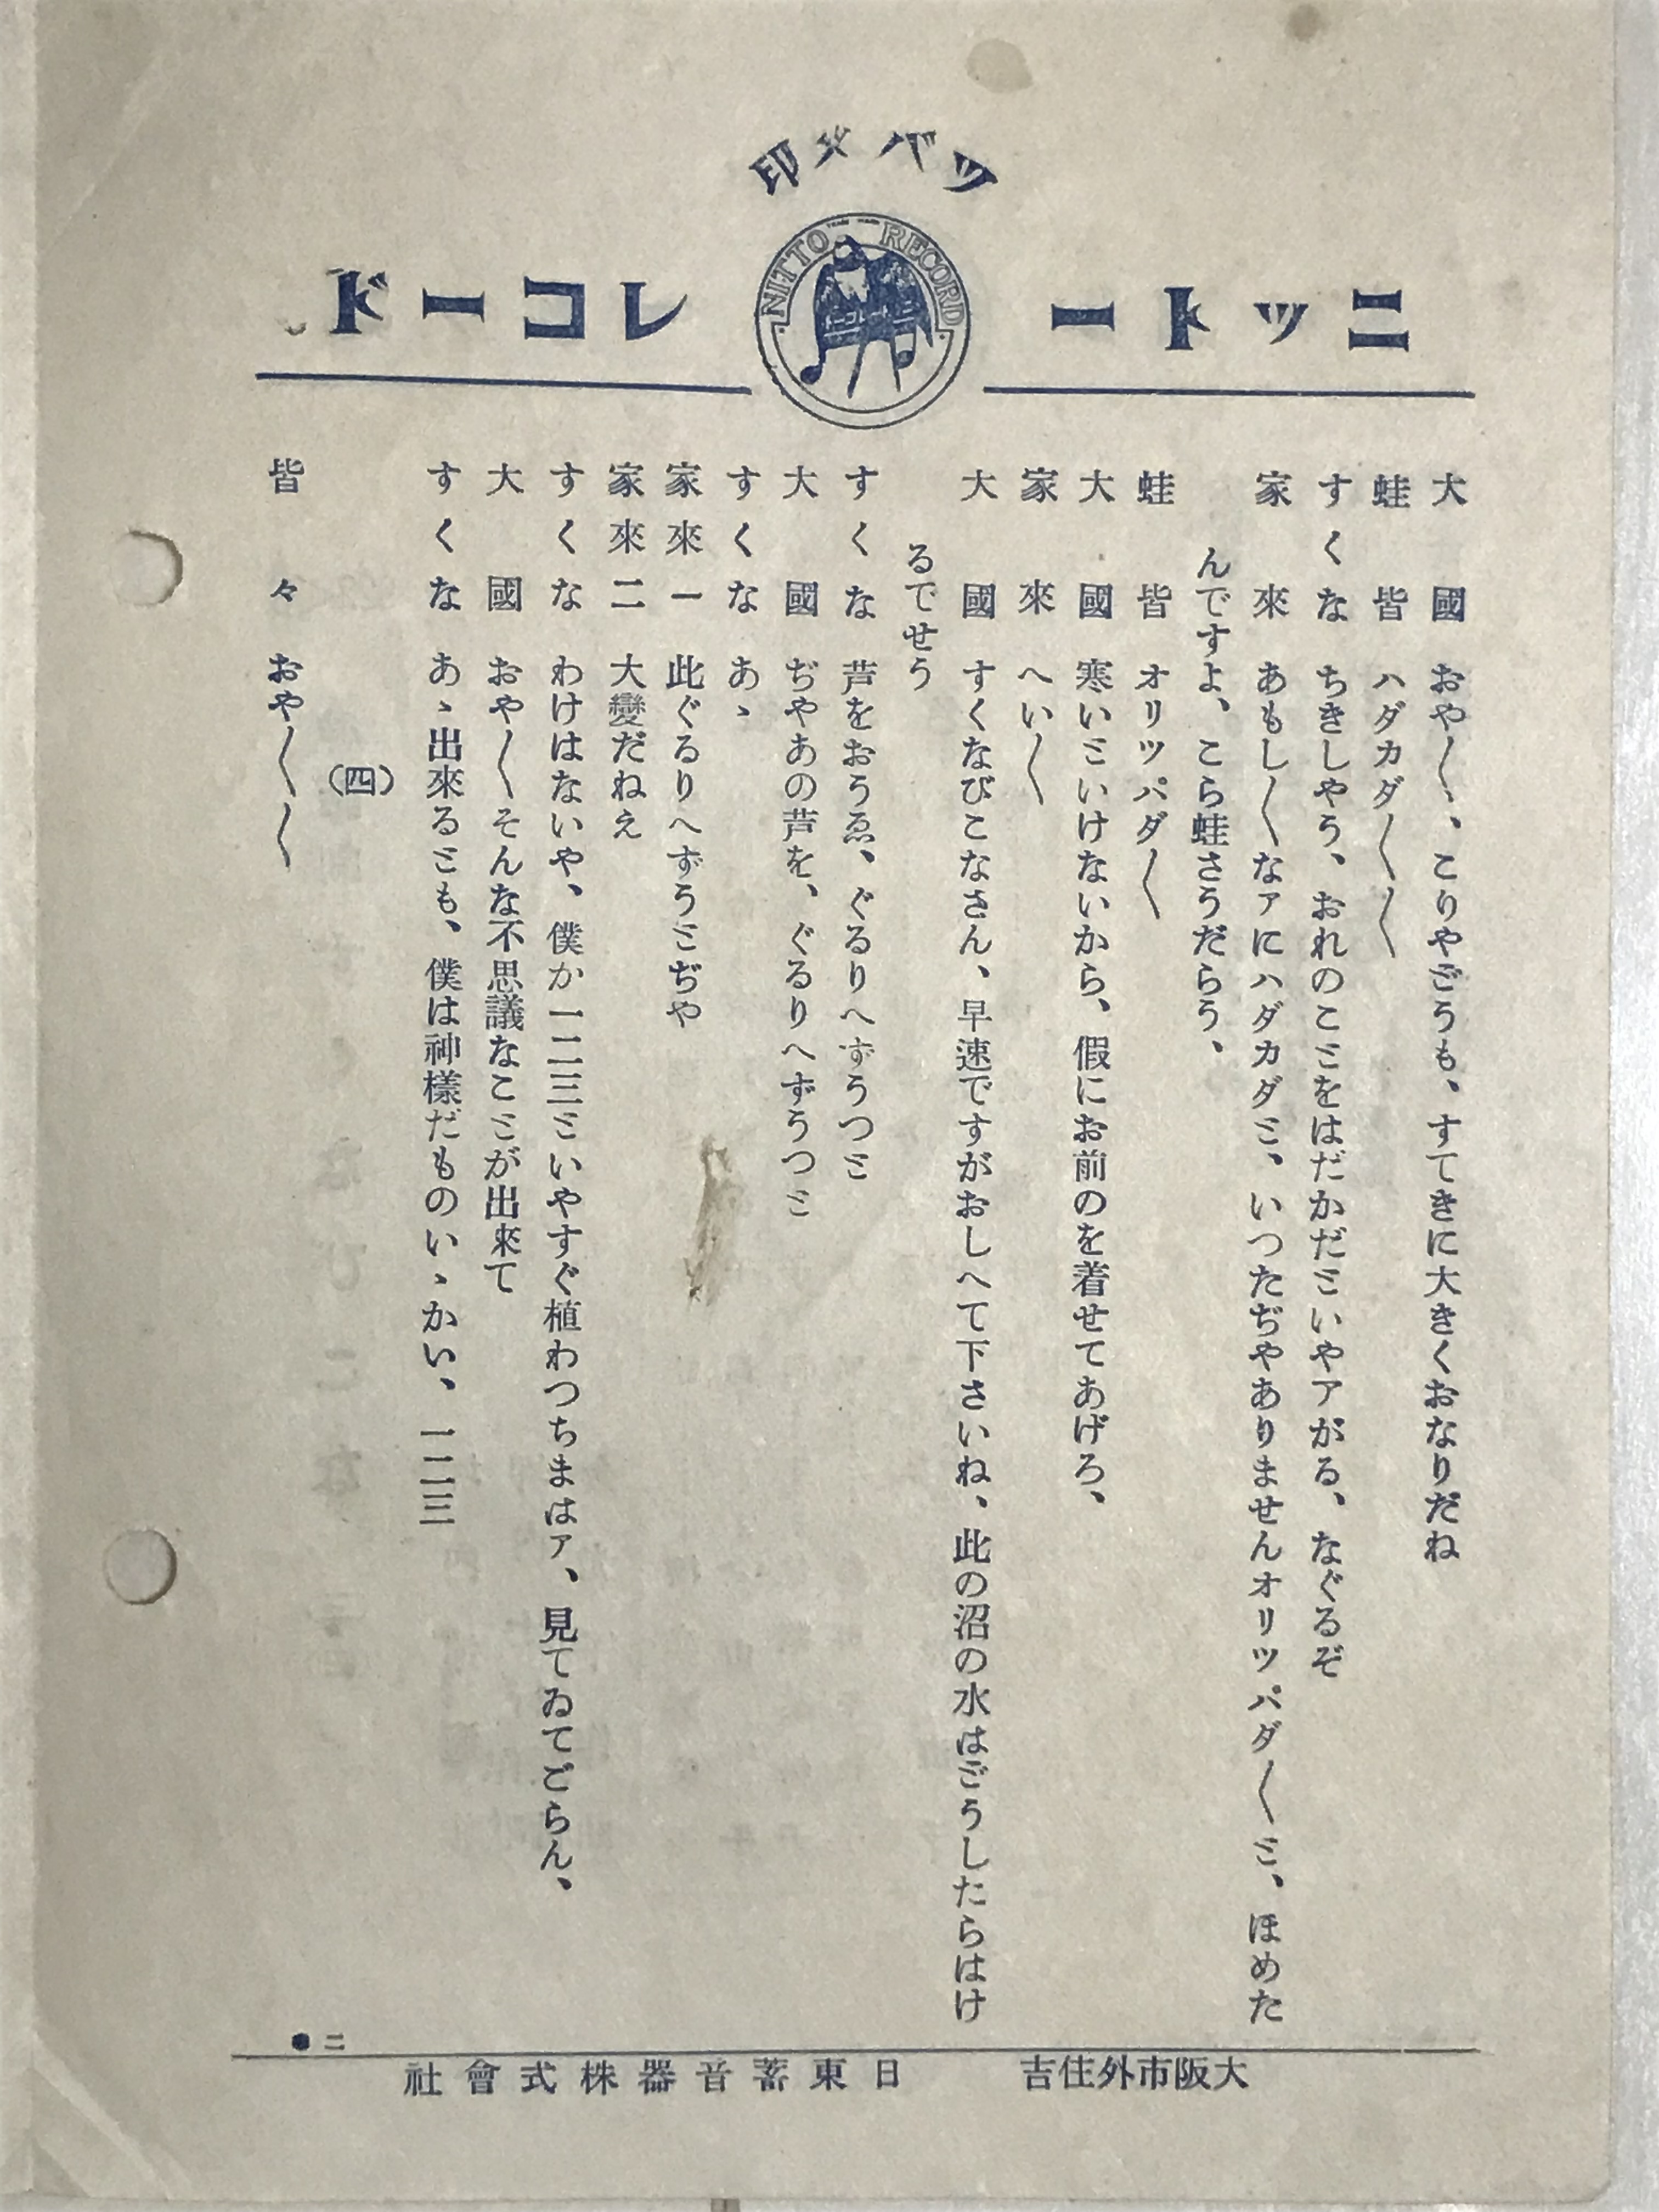 ツバメ印
ニットーレコード
NITTO RECORD
ニットーレコード
大國 おや〱、こりやどうも、すてきに大きくおなりだね
蛙皆 ハダカダ〱〱
すくな ちきしやう、おれのことをはだかだといやアがる、なぐるぞ
家來 あもし〱なアにハダカダと、いつたぢやありませんオリツパダ〱と、ほめた
んですよ、こら蛙さうだらう、
蛙皆 オリツパダ〱
大國 寒いといけないから、假にお前のを着せてあげろ、
家來 へい〱
大國 すくなびこなさん、早速ですがおしへて下さいね、此の沼の水はどうしたらはけ
るでせう
すくな 芦をおうゑ、ぐるりへずうつと
大國 ぢやあの芦を、ぐるりへずうつと
すくな あゝ
家來一 此ぐるりへずうとぢや
家來二 大變だねえ
すくな わけはないや、僕か一二三といやすぐ植わつちまはア、見てゐてごらん、
大國 おや〱そんな不思議なことが出來て
すくな あゝ出來るとも、僕は神様だものいゝかい、一二三
(四)
皆々 おや〱〱
●二
大阪市外住吉 日東蓄音器株式會社